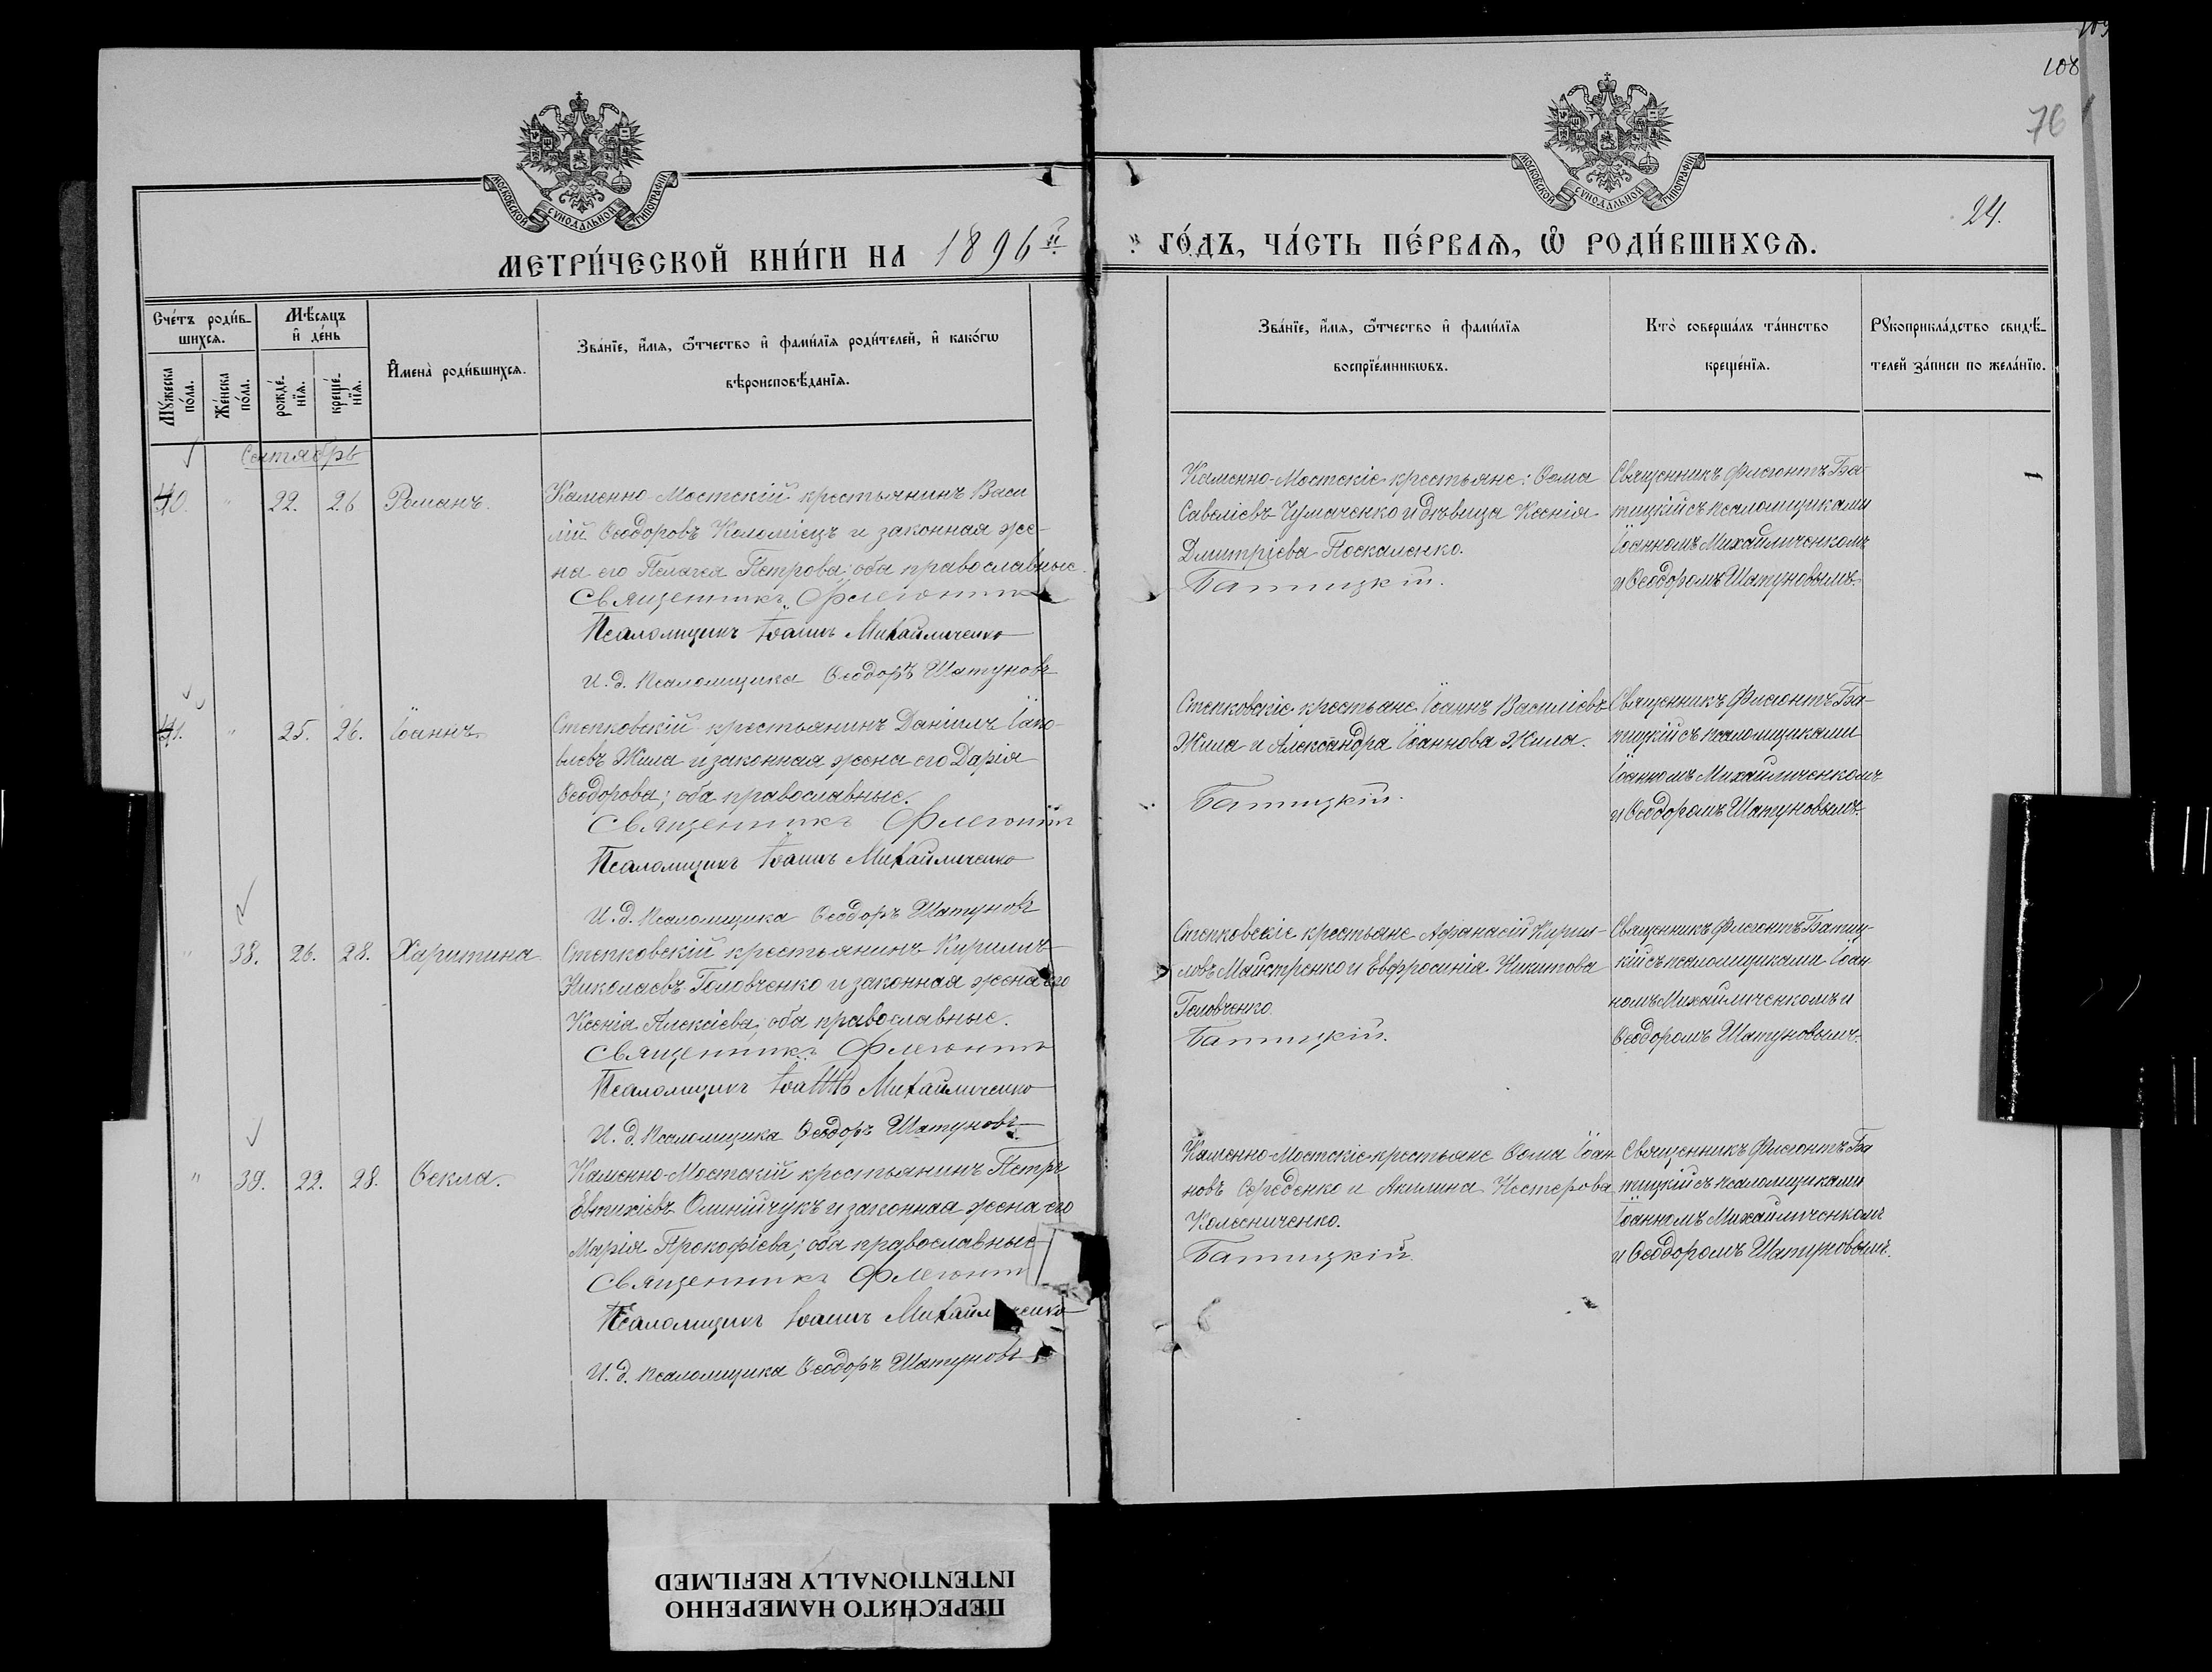 108
76
24.
МОСКОВСКОЙ СѴНОДАЛЬНОЙ ТИПОГРАФІИ
МОСКОВСКОЙ СѴНОДАЛЬНОЙ ТИПОГРАФІИ
МЕТРИ́ЧЕСКОЙ КНИ́ГИ НА 1896й
ГО́ДЪ, ЧА́СТЬ ПЕ́РВАѦ, Ѽ РОДИ́ВШИХСѦ.
Сче́тъ роди́в-
шихсѧ.
Мꙋ́жеска
по́ла.
Же́нска
по́ла.
Мѣ́сяцъ
и҆ де́нь
рожде́-
нїѧ.
креще́-
нїѧ.
И҆мена̀ роди́вшихсѧ.
Зва́нїе, и҆́мѧ, ѻ҆́тчество и҆ фами́лїѧ роди́телей, и҆ како́гѡ
вѣроисповѣ́данїѧ.
Зва́нїе, и҆́мѧ, ѻ҆́тчество и҆ фами́лїѧ
воспрїе́мникѡвъ.
Кто̀ соверша́лъ та́инство
креще́нїѧ.
Рꙋкоприкла́дство свидѣ́-
телей за́писи по жела́нїю.
Сентябрь
40. " 22. 26 Романъ.
Каменно-Мостскій крестьянинъ Васи
лій Ѳеодоровъ Коломіецъ и законная же-
на его Пелагея Петрова; оба православные.
Священникъ Флегонтъ
Псаломщикъ Іоаннъ Михайличенко
И. д. псаломщика Ѳеодоръ Шатуновъ
Каменно-Мостскіе крестьяне: Ѳома
Савеліевъ Чумаченко и дѣвица Ксенія
Дмитріева Поскаленко.
Батицкій.
Священникъ Флегонтъ Ба-
тицкій съ псаломщиками
Іоанномъ Михайличенкомъ
и Ѳеодоромъ Шатуновымъ.
41. " 25. 26. Іоаннъ.
Степковскій крестьянинъ Даніилъ Іако-
влевъ Жила и законная жена его Дарія
Ѳеодорова; оба православные.
Священникъ Флегонтъ
Псаломщикъ Іоаннъ Михайличенко
И. д. псаломщика Ѳеодоръ Шатуновъ
Степковскіе крестьяне Іоаннъ Василіевъ
Жила и Александра Іоаннова Жила.
Батицкій.
Священникъ Флегонтъ Ба-
тицкій съ псаломщиками
Іоанномъ Михайличенкомъ
и Ѳеодоромъ Шатуновымъ.
" 38. 26. 28. Харитина
Степковскій крестьянинъ Кириллъ
Николаевъ Головченко и законная жена его
Ксенія Алексіева; оба православные.
Священникъ Флегонтъ
Псаломщикъ Іоаннъ Михайличенко
И. д. псаломщика Ѳеодоръ Шатуновъ
Степковскіе крестьяне Афанасій Кирил-
ловъ Майстренко и Евфросинія Никитова
Головченко.
Батицкій.
Священникъ Флегонтъ Батиц-
кій съ псаломщиками Іоан
номъ Михайличенкомъ и
Ѳеодоромъ Шатуновымъ.
" 39. 22. 28. Ѳекла.
Каменно-Мостскій крестьянинъ Петръ
Евтихіевъ Олинійчукъ и законная жена его
Марія Прокофіева; оба православные
Священникъ Флегонтъ
Псаломщикъ Іоаннъ Михайличенко
И. д. псаломщика Ѳеодоръ Шатуновъ
Каменно-Мостскіе крестьяне Ѳома Іоан
новъ Середенко и Акилина Нестерова
Колесниченко.
Батицкій
Священникъ Флегонтъ Ба
тицкій съ псаломщиками
Іоанномъ Михайличенкомъ
и Ѳеодоромъ Шатуновымъ.
ПЕРЕСНЯТО НАМЕРЕННО
INTENTIONALLY REFILMED